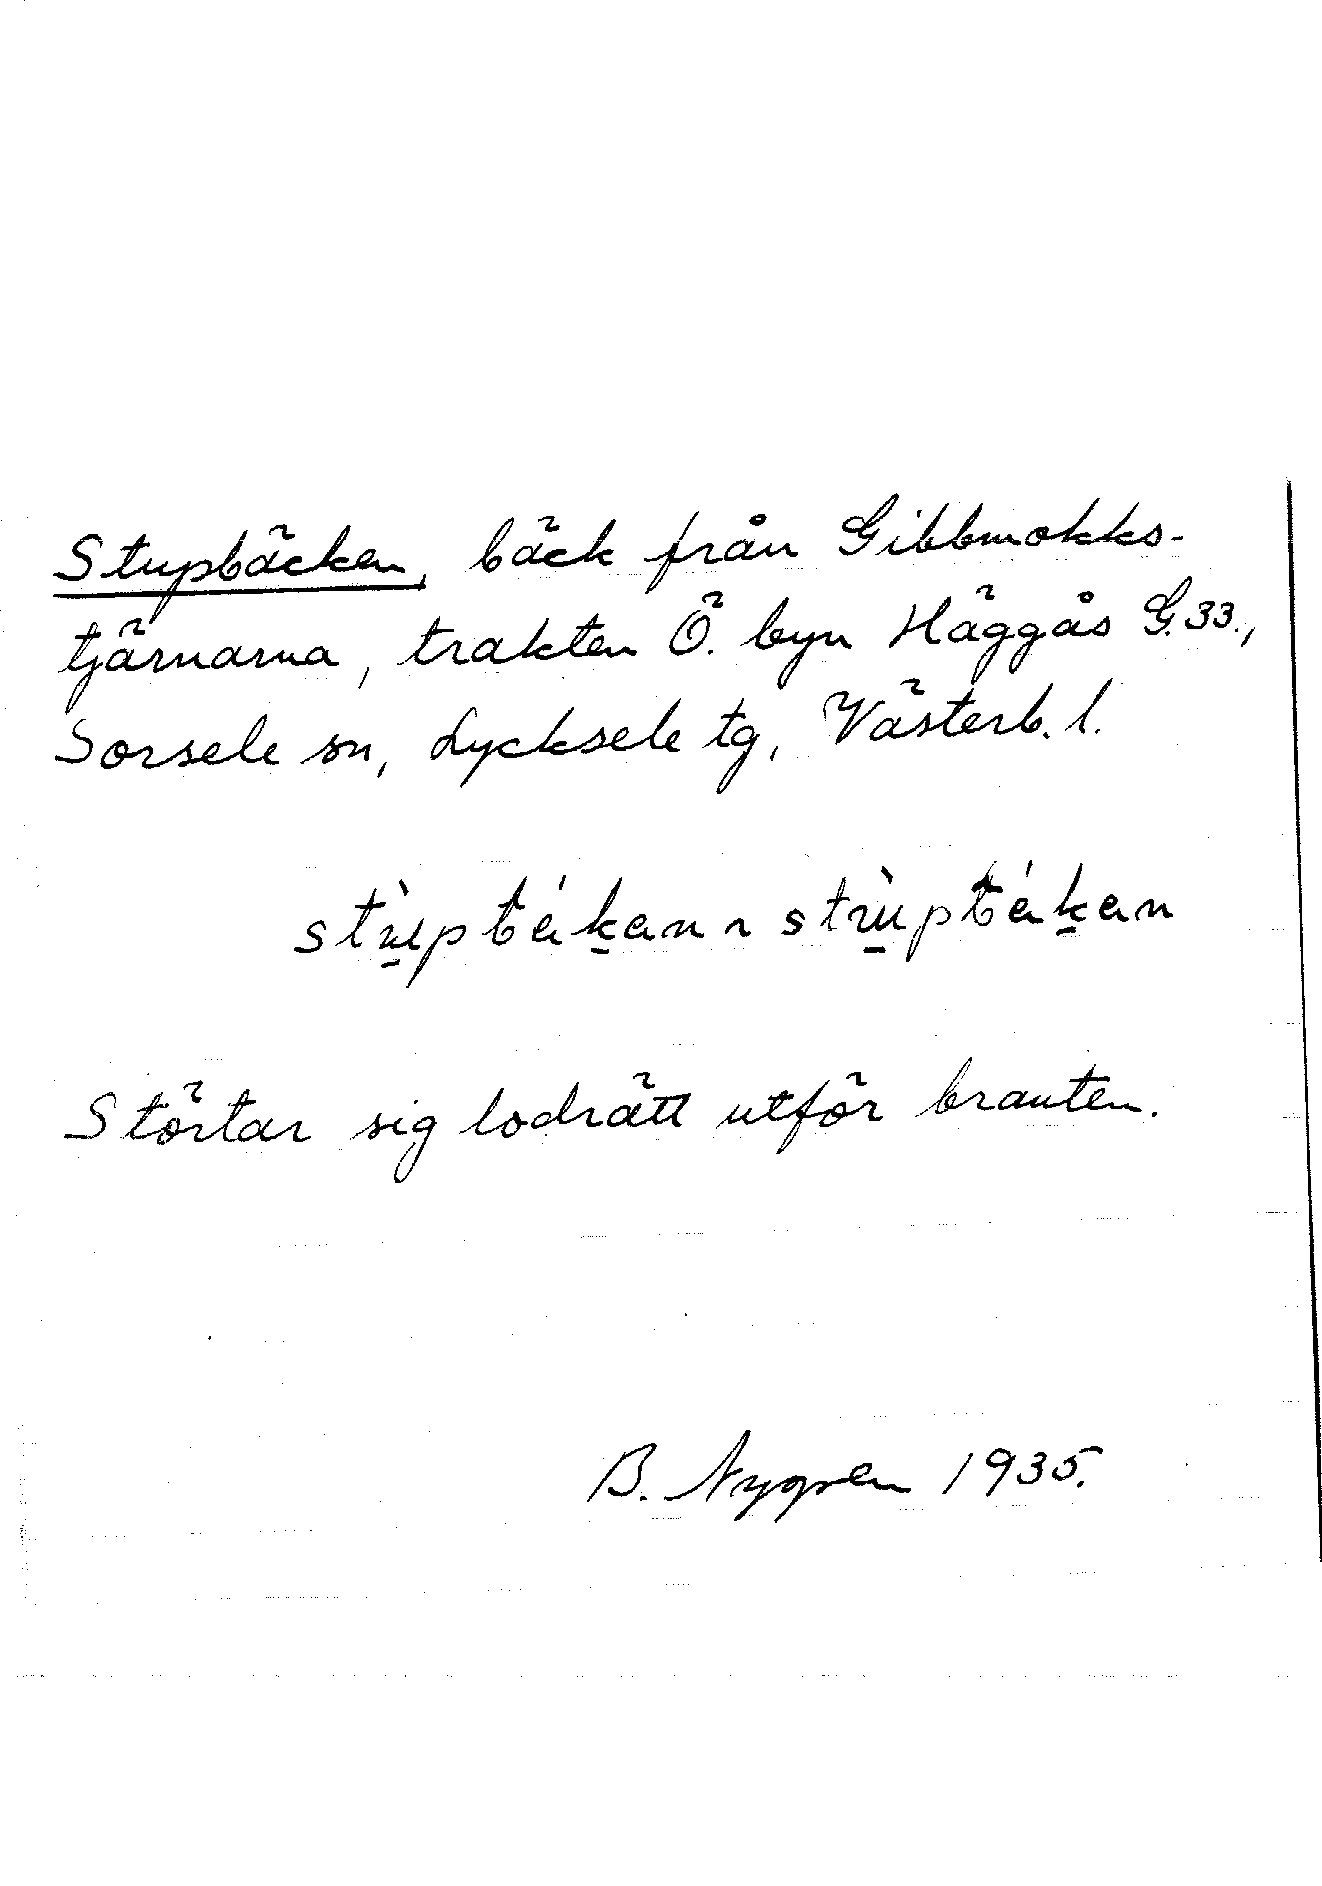 Stupbäcken, bäck från Gibbmokks-
tjärnarna, trakten Ö. byn Häggås G.33.,
Sorsele sn, Lycksele tg, Västerb. l.
Störtar sig lodrätt utför branten.
B. Nygren 1935.